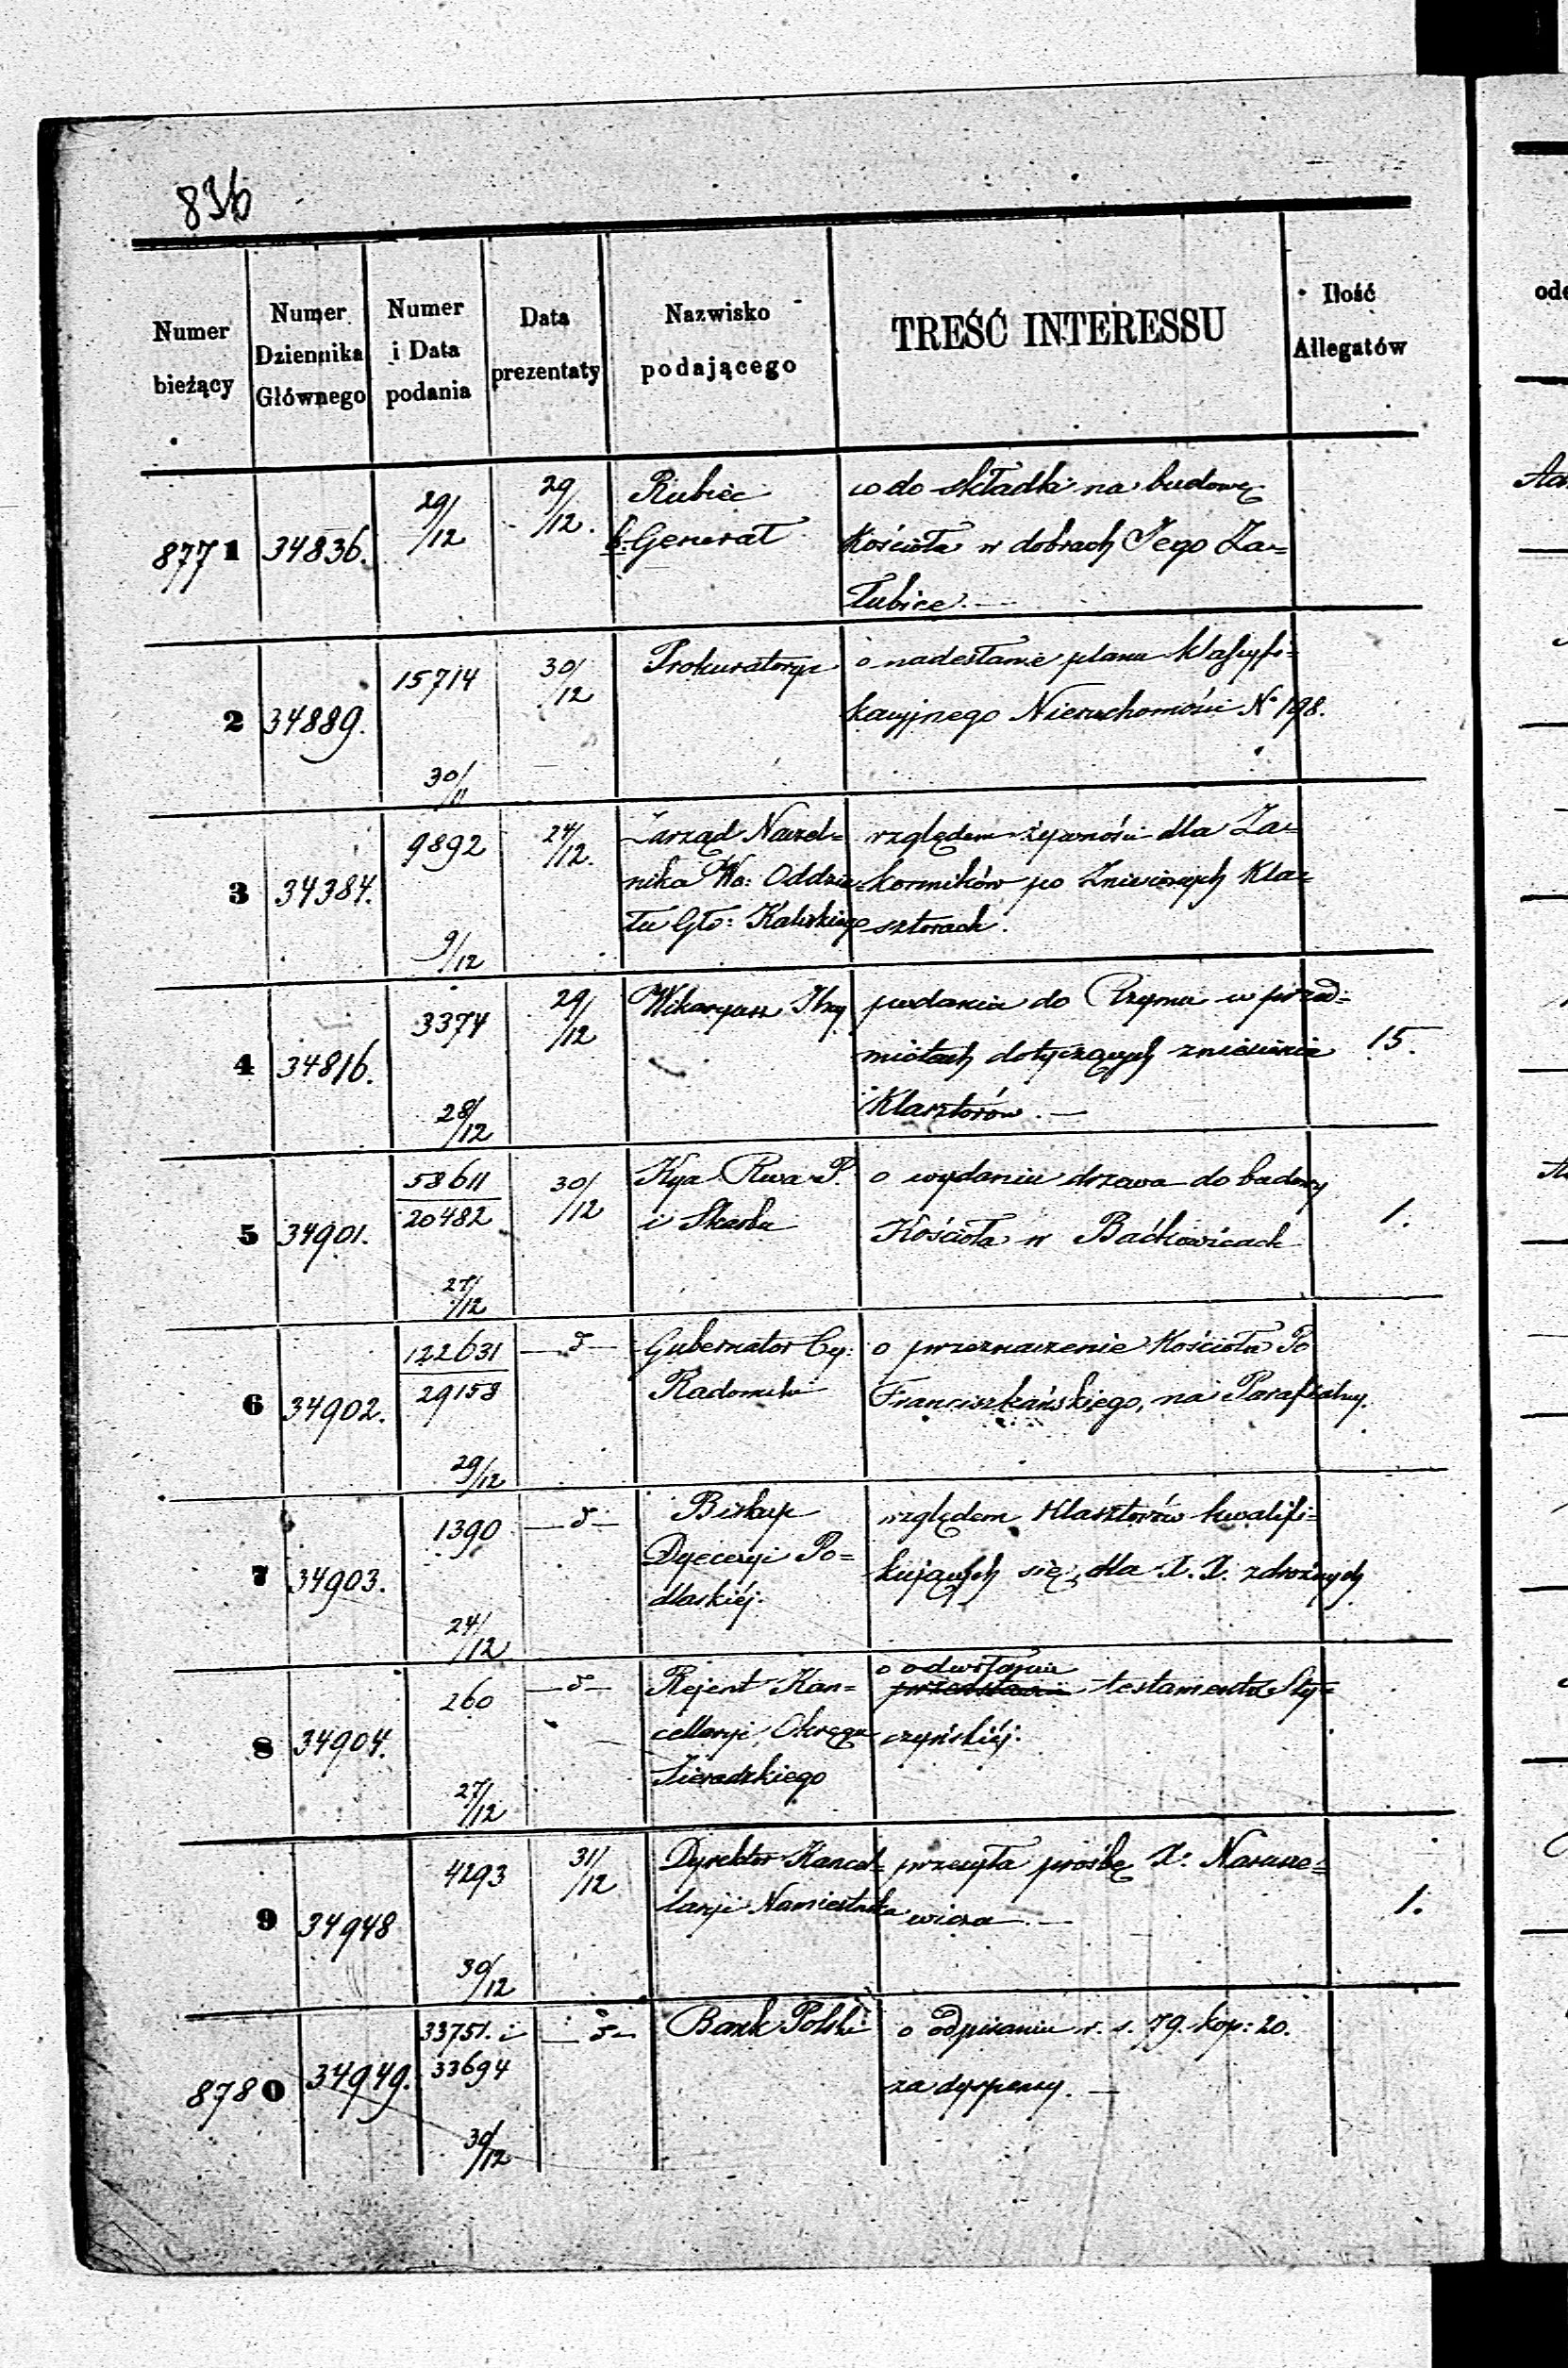 836
Numer bieżący
Numer Dziennika Głównego
Numer i Data podania
Data prezentaty
Nazwisko podającego
TREŚĆ INTERESSU
Ilość Allegatów
8771 34836. 29/12 29/12. Rubiec
b: Generał
w do składki na budowę
Kościoła w dobrach Jego Za=
łubice. —
2 34889. 15714 30/11 30/12 Prokuratorya
o nadesłanie planu klassyfi=
kacyjnego Nieruchomości No 198.
3 34384. 9892 9/12 24/12. Zarząd Naczel=
nika Wo: Oddzia=
łu Głó: Kaliskiego
względem żywności dla Za=
konników po Zniesionych Kla=
sztorach.
4 34816. 3374 28/12 29/12 Wikaryusz
podania do Rzymu w przed=
miotach dotyczących zniesienia
Klasztorów. — 15.
5 34901. 58611
20482 27/12 30/12 Kya Rwa P.
i Skarbu
o wydaniu drzewa do budowy
Kościoła w Baćkowicach 1.
6 34902. 122631
29158 29/12 — d — Gubernator Cy:
Radomski
o przeznaczenie Kościoła Po
Franciszkańskiego, na Parafialny.
7 34903. 1390 24/12 — d — Biskup
Dyecezyi Po=
dlaskiéj.
względem Klasztorów kwalifi=
kujących się, dla X. X. zdrożnych
8 34904. 260 27/12 — d — Rejent Kan=
cellaryi Okręgu
Sieradzkiego
o odwołaniu
testamentu Sty=
czyńskiéj.
9 34948 4293 30/12 31/12 Dyrektor Kancel=
laryi Namiestnika
przesyła prośbę X. Narusze=
wicza — 1.
8780 34949. 33751. i
33694 30/12 — d — Bank Polski
o odpisaniu r. s. 79. kop: 20.
za dyspensy. —